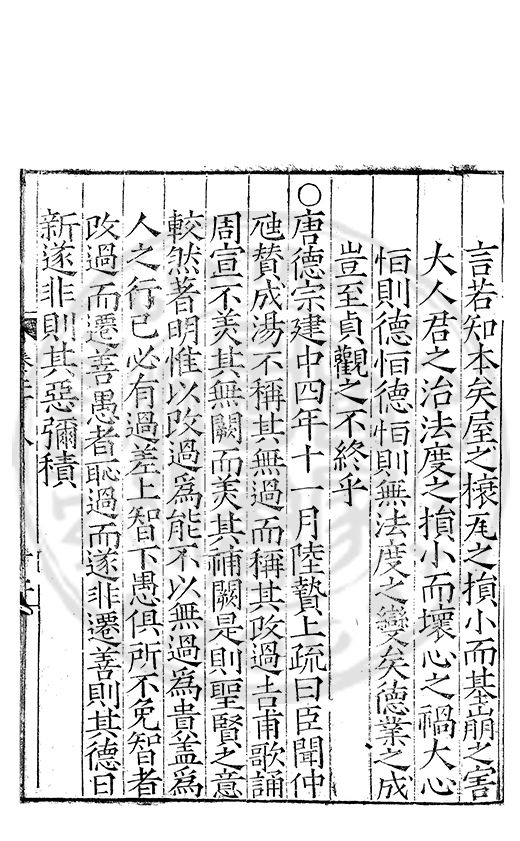 言若知本矣屋之榱瓦之損小而基崩之害
大人君之治法度之損小而壞心之禍大心
恒則德恒德恒則無法度之變矣德業之成
豈至貞觀之不終乎
○唐德宗建中四年十一月陸贄上疏曰臣聞仲
虺贊成湯不稱其無過而稱其改過吉甫歌誦
周宣不美其無闕而美其補闕是則聖賢之意
較然著明惟以改過爲能不以無過爲貴蓋爲
人之行已必有過差上智下愚俱所不免智者
改過而遷善愚者恥過而遂非遷善則其德日
新遂非則其惡彌積